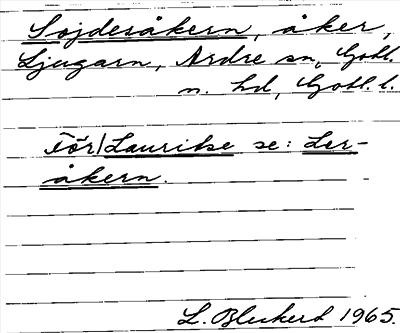 Sojdesåkern, åker,
Ljugarn, Ardre sn, Gotl.
n. hd, Gotl. l.
För Lauritse se: Ler-
åkern.
L. Bleckert 1965.